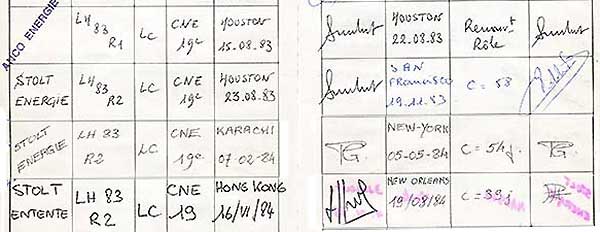 ANCO ENERGIE
LH 83
R1
LC
CNE
19e
HOUSTON
15.08.83
HOUSTON
22.08.83
Renouv't
Rôle
STOLT
ENERGIE
LH 83
R2
LC
CNE
19e
HOUSTON
23.08.83
SAN
Francisco
19.11.83
C = 58
STOLT
ENERGIE
LH 83
R2
LC
CNE
19e
KARACHI
07-02-84
TG.
NEW-YORK
05-05-84
C = 54j.
TG.
STOLT
ENTENTE
LH 83
R2
LC
CNE
19
HONG KONG
16/VI/84
NEW ORLEANS
19/08/84
C = 39j
STOLT